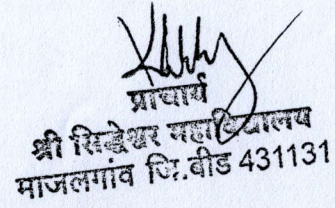 प्राचार्य
श्री सिद्धेश्वर महाविद्यालय
माजलगांव जि.बीड 431131